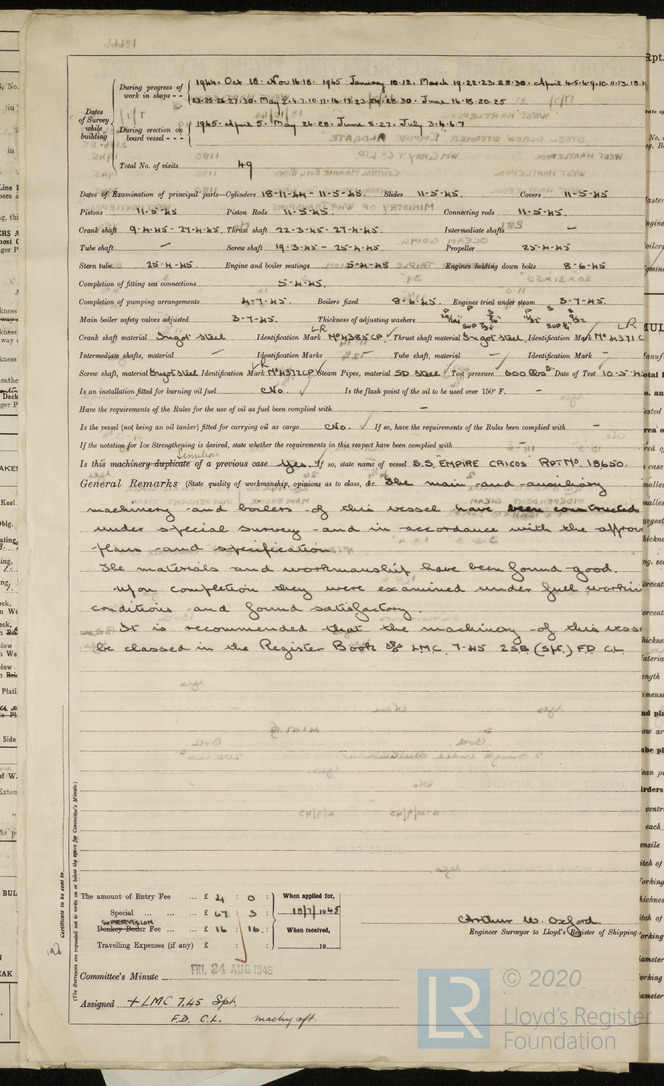 Dates of Survey while building
During progress of work in shops - - 1944. Oct 18. Nov 16.18. 1945 January 10.12. March 19.22.23.28.30. April 4.5.6.9.10.11.13.18.
23.25.26.27.30. May 2.4.7.10.11.16.17.23.24.28.30. June 16.18.20.25
During erection on board vessel - - - 1945. April 5. May 24.28. June 8.27. July 3.4.6.7
Total No. of visits 49
Dates of Examination of principal parts—Cylinders 18-11-44 - 11-5-45. Slides 11-5-45. Covers 11-5-45
Pistons 11-5-45 Piston Rods 11-5-45. Connecting rods 11-5-45.
Crank shaft 9-4-45 - 27-4-45. Thrust shaft 22-3-45 - 27-4-45 Intermediate shafts –
Tube shaft – Screw shaft 19-3-45 - 25-4-45. Propeller 25-4-45
Stern tube 25-4-45. Engine and boiler seatings 5-4-45 Engines holding down bolts 8-6-45
Completion of fitting sea connections 5-4-45.
Completion of pumping arrangements 4-7-45. Boilers fixed 8-6-45. Engines tried under steam 3-7-45.
Main boiler safety valves adjusted 3-7-45. Thickness of adjusting washers
Crank shaft material Ingot Steel Identification Mark LR No 4385CP. Thrust shaft material Ingot Steel Identification Mark LR No 4371C
Intermediate shafts, material – Identification Marks – Tube shaft, material – Identification Mark –
Screw shaft, material Ingot Steel Identification Mark LR No 4372CP Steam Pipes, material SD Steel Test pressure 600 lbs Date of Test 10-5-4
Is an installation fitted for burning oil fuel No. Is the flash point of the oil to be used over 150° F. –
Have the requirements of the Rules for the use of oil as fuel been complied with –
Is the vessel (not being an oil tanker) fitted for carrying oil as cargo No. If so, have the requirements of the Rules been complied with –
If the notation for Ice Strengthening is desired, state whether the requirements in this respect have been complied with –
Is this machinery duplicate similar of a previous case Yes. If so, state name of vessel S.S. EMPIRE CAICOS RPT No. 18650.
General Remarks (State quality of workmanship, opinions as to class, &c. The main and auxiliary
machinery and boilers of this vessel have been constructed
under special survey and in accordance with the approv
plans and specification.
The materials and workmanship have been found good.
Upon completion they were examined under full workin
conditions and found satisfactory.
It is recommended that the machinery of this vess
be classed in the Register Book LMC. 7-45 2SB (Spt.) FD CL
The amount of Entry Fee ... £ 4 : 0 :
Special ... ... ... £ 67 : 3 :
SUPERVISION
Donkey Boiler Fee ... £ 16 : 16. :
Travelling Expenses (if any) £ : :
When applied for,
18/7/1945
When received,
19
Arthur W. Oxford.
Engineer Surveyor to Lloyd's Register of Shipping.
Committee's Minute FRI. 24 AUG 1945
Assigned + LMC 7.45 Spt.
F.D. C.L. machy aft.
Certificate to be sent to
(The Surveyors are requested not to write on or below the space for Committee's Minute.)
© 2020
LR Lloyd's Register
Foundation